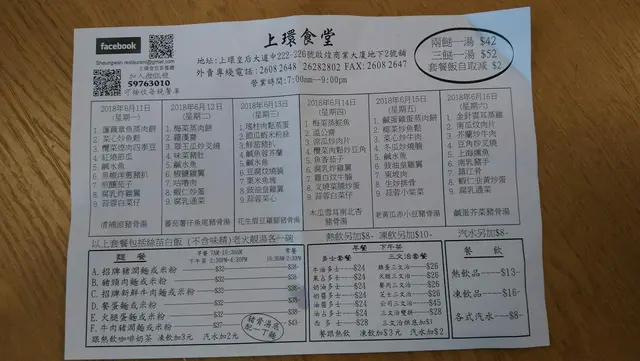 facebook
Sheungwan restaurant@gmail.com
加入微信號
59763010
可接收每週餐單
上環食堂
地址:上環皇后大道中222-226號啟煌商業大廈地下2號舖
外賣專線電話:2608 2648 26282802 FAX:2608 2647
營業時間:7:00am--9:00pm
兩餸一湯 $42
三餸一湯 $52
套餐飯自取減 $2
2018年6月11日
(星期一)
1. 蓮藕章魚蒸肉餅
2. 菜心炒魚鬆
3. 欖菜燜肉四季豆
4. 紅燒茄瓜
5. 鹹水魚
9. 蒜蓉白菜仔
2018年6月12日
(星期二)
1. 梅菜蒸肉餅
2. 鐘廣齋
3. 翠玉瓜炒叉燒
4. 味菜豬肚
5. 鹹水魚
6. 椒鹽雞翼
7. 咕嚕肉
8. 蝦仁炒蛋
9. 腐乳通菜
番茄薯仔魚尾豬骨湯
2018年6月13日
(星期三)
1. 瑤柱肉鬆蒸蛋
2. 節瓜蝦米粉絲
3. 鮮茄豬扒
4. 鹹魚蓉芥蘭
5. 鹹水魚
6. 豆腐炆燒腩
7. 粟米魚塊
8. 豉油皇雞翼
9. 蒜蓉菜心
花生眉豆雞腳豬骨湯
2018年6月14日
(星期四)
1. 梅菜蒸鯇魚
2. 溫公齋
3. 涼瓜炒肉片
4. 欖菜肉鬆炒豆角
5. 魚香茄子
6. 腐乳炸雞翼
7. 蘿白炆牛腩
8. 叉燒菜脯炒蛋
9. 腐乳白菜仔
木瓜雪耳南北杏
豬骨湯
2018年6月15日
(星期五)
1. 鹹蛋雞蓉蒸肉餅
2. 椰菜炒魚鬆
3. 京都肉排
4. 粟米肉粒
5. 鹹水魚
6. 豉油皇雞翼
7. 東坡肉
8. 生炒排骨
9. 蒜蓉小棠菜
老黃瓜赤小豆豬骨湯
2018年6月16日
(星期六)
1. 金針雲耳蒸雞
2. 南瓜炆肉片
3. 芥蘭炒牛肉
4. 豆角炒叉燒
5. 上海燻魚
6. 南乳豬手
7. 鎮江骨
8. 蝦仁豆黃炒蛋
9. 腐乳通菜
鹹蛋芥菜豬骨湯
以上套餐包括絲苗白飯 (不含味精) 老火靚湯各一碗
熱飲另加$8- 凍飲另加$10- 汽水另加$8-
麵餐
早餐 7AM-10:30AM
下午茶 2:30PM-4:30PM
A. 招牌豬潤麵或米粉 $32 $38-
B. 豬頸肉麵或米粉 $32 $38-
C. 招牌新鮮牛肉麵或米粉 $32 $38-
D. 餐蛋麵或米粉 $32 $38-
E. 火腿蛋麵或米粉 $32 $38-
F. 牛肉豬潤麵或米粉 $37 $43-
跟熱飲咖啡奶茶 凍飲加3元 汽水加2元
豬骨湯底
配一丁麵
早餐 下午茶
多士套餐 三文治套餐
牛油多士---$24
果占多士---$24
奶油多士---$24
奶醬多士---$24
油占多士---$24
西多士---$28
雞蛋三文治---$26
火腿三文治---$26
餐肉三文治---$26
公司三文治---$45
三文治雙拼---$28
三文治烘底加$1
餐跟熱茶 凍飲加3元 汽水加2元
餐飲
熱飲品----$13-
凍飲品----$16-
各式汽水--$8-